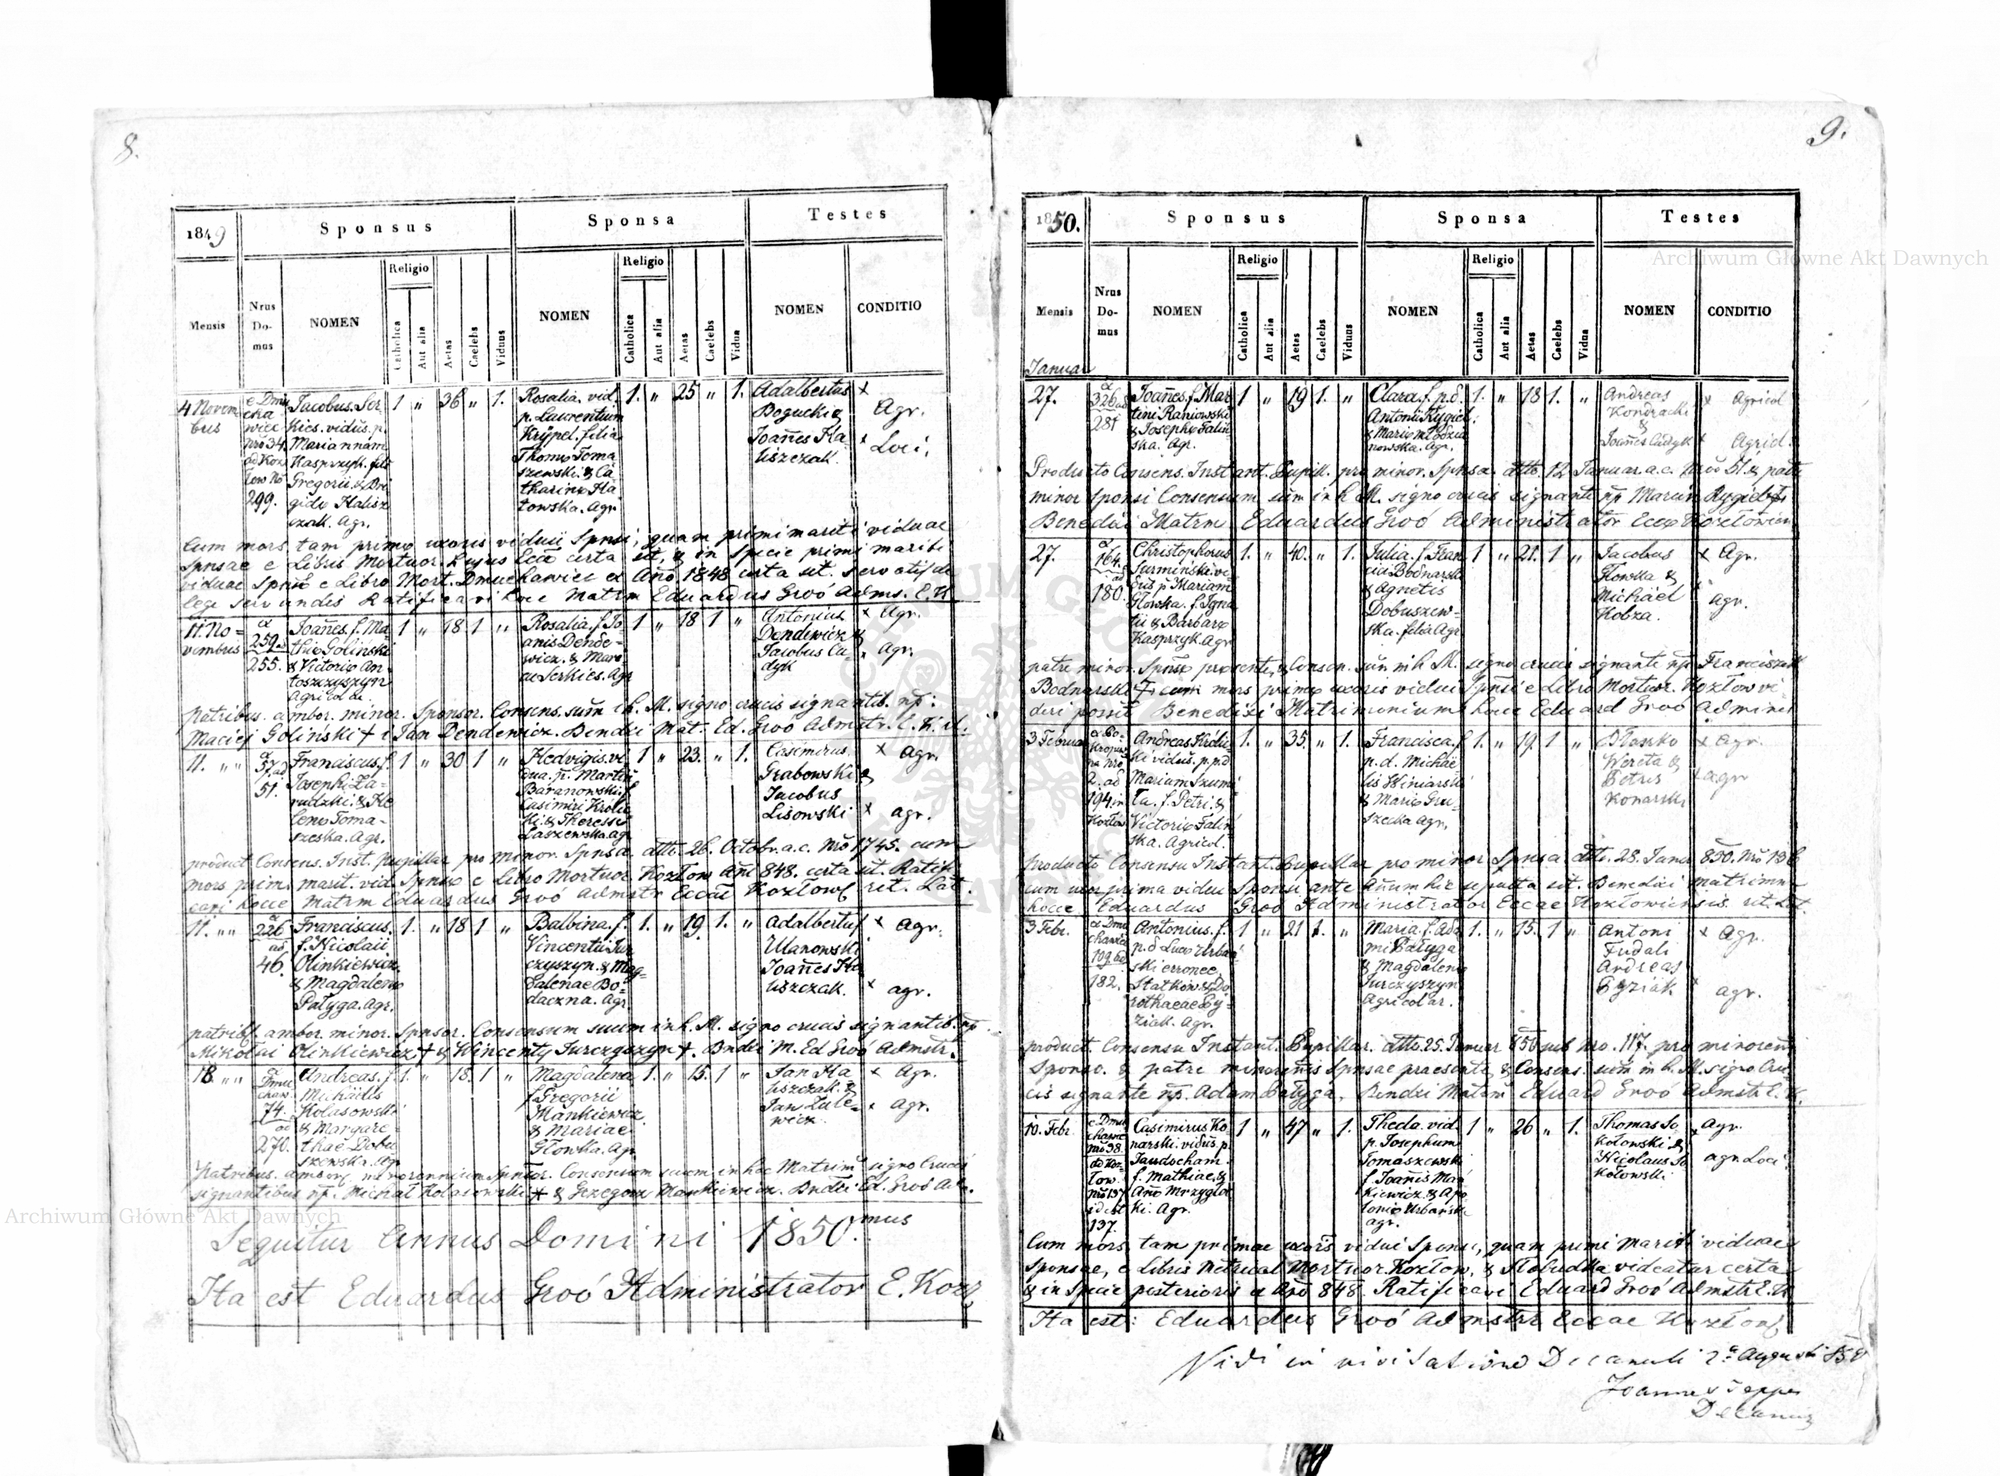 8.
1849
Sponsus
Sponsa
Testes
Mensis
Nrus Do- mus
NOMEN
Religio
Catholica
Aut alia
Aetas
Caelebs
Viduus
NOMEN
Religio
Catholica
Aut alia
Aetas
Caelebs
Vidua
NOMEN
CONDITIO
4 Novem
bris
299.
Jacobus Ser
kies. vidūs. p.
Mariannam
Kasprzyk. fili
Gregorii & Bri
gidæ Halisz
czak. Agr.
1 „ 36 „ 1.
Rosalia. vid.
p. Laurentium
Krypel. filia
Thomæ Toma
szewski & Ca
tharinæ Ha
towska. Agr
1. „ 25 „ 1.
Adalbertus
Bogucki &
Joañes Ha
liszczak.
× Agr.
× Loci,
Cum mors, tam primæ uxoris vidui Spnsi, quam primi mariti viduae
Spnsae e Libris Mortuor. hujus Eccæ certa sit, & in specie primi mariti
viduae Spnsæ e Libro Mort. Dmuchawiec ex Año 1848 certa sit. servatis de
lege servandis Ratificavi hocce Matrm Eduardus Groó Adms. E. K.
11. No-
vembris
259 ad
255.
Joañes. f. Ma
thiæ Golinski
& Victoriæ An
toszczyszyn
Agricolar
1 „ 18 1 „
Rosalia. f. Jo
anis Dende-
wicz. & Mari
ae Serkies. Agr
1 „ 18 1 „
Antonius
Dendewicz &
Jacobus Ca-
dyk
× Agr.
× Agr.
patribus. ambor. minor. Sponsor. Consens. sūm i h. M. signo crucis signantib. np:
Maciej Golinski + i Jan Dendewicz. Benedixi Mat. Ed. Groó Admstr.
11. „ „
37. ad
51.
Franciscus. f.
Josephi Za-
rudzki. & He
lenæ Toma-
szeska. Agr.
1 „ 30 1 „
Hedvigis. vi
dua. p. Martin
Baranowski. f.
Casimiri Krolic
ki. & Theresiæ
Laszewska. agr
1 „ 23. „ 1.
Casimirus.
Grabowski &
Jacobus
Lisowski
× Agr.
× agr.
product. Consens. Inst. pupillar pro minor. Spnsa. dtto. 26. Octobr. a.c. Nrō 1745. cum
mors primi marit. vid. Spnsæ e Libro Mortuor. Kozłow Añi 848. certa sit. Ratifi
cavi hocce Matrm Eduardus Groó Admstr Eccae Kozłow. rit. Lat.
11. „ „
226
ad
46.
Franciscus.
f. Nicolaii
Olinkiewicz.
& Magdalenæ
Pałyga. Agr.
1. „ 18 1 „
Balbina. f.
Vincentii Jur
czyszyn. & Mag-
dalenae Bo-
daczna. Agr
1. „ 19. 1. „
Adalbertus
Ulanowski
Joañes Ha
liszczak.
× Agr.
× agr.
patribs. ambor. minor. Spnsor. Consensum suum in h. M. signo crucis signantib. np.
Mikołai Olinkiewicz + & Wincenty Jurczyszyn +. Bndxi M. Ed Groó Admstr.
18. „ „
74.
ad
270.
Andreas. f.
Michaelis
Kolasowski
& Margare-
thae Dobu
szewska. Agr
1. „ 18. 1 „
Magdalena
f Gregorii
Mankiewicz
& Mariae
Głowka. Agr
1. „ 15. 1 „
Jan Ha
liszczak. &
Jan Zule-
wicz.
× Agr.
× agr.
Patribus. ambor. minorennium Spnsor. Consensum suum in hoc Matrim signo Crucis
signantibus np. Michał Kolasowski + & Grzegorz Mankiewicz. Bndxi Ed. Groó Ad.
Sequitur Annus Domini 1850.mus
Ita est Eduardus Groó Administrator E. Kozł
9.
1850.
Sponsus
Sponsa
Testes
Mensis
Nrus Do- mus
NOMEN
Religio
Catholica
Aut alia
Aetas
Caelebs
Viduus
NOMEN
Religio
Catholica
Aut alia
Aetas
Caelebs
Vidua
NOMEN
CONDITIO
Januar
27.
326 ad
281
Joañes. f. Mar
tini Raniowski
& Josephæ Falin
ska. Agr.
1 „ 19 1. „
Clara. f. p.d.
Antonii Rygiel
& Mariæ Młodzia
nowska. Agr.
1. „ 18 1. „
Andreas
Kondracki
&
Joañes Cadyk
× Agricol
× Agricl.
Producto Consens. Instant. Pupill. pro minor. Spnsa. dtto 12 Januar. a.c. Nrō 51. & patre
minor Sponsi Consensum sūm in h. M. signo crucis signante np Marcin
Benedixi Matrm. Eduardus Groó Administrator Eccæ Kozłowien
27.
164.
ad
180.
Christophorus
Surminski. vi-
dūs p. Mariam
Głowka. f. Igna
tii & Barbaræ
Kasprzyk. Agr
1. „ 40. „ 1.
Julia. f. Fran
cisci Bodnarski
& Agnetis
Dobuszew-
ska. filia Agr
1 „ 21. 1 „
Jacobus
Głowka &
Michael
Kobza.
× Agr.
× agr.
patre minor. Spnsæ præsente, & Consen. sūm in h. M. signo crucis signante np. Franciszek
Bodnarski +. cum mors primæ uxoris vidui Spnsi e Libro Mortuor. Kozłow vi-
deri possit Benedixi Matrimonium hocce Eduard Groó Adminis
3 Februar
2. ad
194 in
Kozłow
Andreas Krolic
ki vidūs. p. p.d
Mariam Szumi
ta. f. Petri. &
Victoriæ Falin
ska. Agricol.
1. „ 35. „ 1.
Francisca. f.
p. d. Michae
lis Winiarski
& Mariæ Gru-
szecka Agr.
1. „ 19. 1 „
Wereta &
Petrus
Konarski
× Agr.
× agr
producto Consensu Instant. Pupillar pro minor Spnsa dtto. 28. Januar 850. Nrō 136
cum uxor prima vidui Sponsi ante añum hic sepulta sit. Benedixi Matrimn
hocce Eduardus Groó Administrator Eccae Kozłowiensis rit. Lat.
3 Febr.
109 ad
182.
Antonius. f.
p.d Lucæ Urban
ski erronee
Statkow & Do
rothaeae Py-
ziak. Agr.
1. „ 21 1. „
Maria. f. Ada
mi Pałyga
& Magdalenæ
Jurczyszyn
Agricolar.
1. „ 15. 1 „
Antoni
Fudali
Andreas
Pyziak
× Agr.
× agr.
product. Consensu Instant. Pupillar. dtto. 25. Januar 850 sub Nro. 117. pro minoreñi
Sponso. & patre minoreñis Spnsae praesente, & Consens. sūm in h. M. signo Cru
cis signante np. Adam Pałyga, Bendxi Matrm Eduard Groó Admstr E. K.
10. Febr.
137.
Casimirus Ko
narski. vidūs. p.
f. Mathiae &
Año Mrzygło
ki. Agr.
1 „ 47 „ 1.
Thecla. vid.
p. Josephum
Tomaszewski
f. Joañis Man
kiewicz. & Apo
loniæ Urbańska
agr.
1 „ 26 „ 1.
Thomas So
kołowski &
Nicolaus So
kołowski.
× Agr.
agr. Loci
Cum mors, tam primae uxoris vidui Sponsi, quam primi Mariti viduae
Sponsae, e Libris Metrical Mortuor. Kozłow, & Płaudka videatur certa
& in specie posterioris ex Año 848. Ratificavi Eduard Groó Admstr E. K.
Ita est: Eduardus Groó Admstr Eccae Kozłow.
Vidi in visitatione Decanali 2a Augusti 850
Joannes
Decanus
Archiwum Główne Akt Dawnych
Archiwum Główne Akt Dawnych